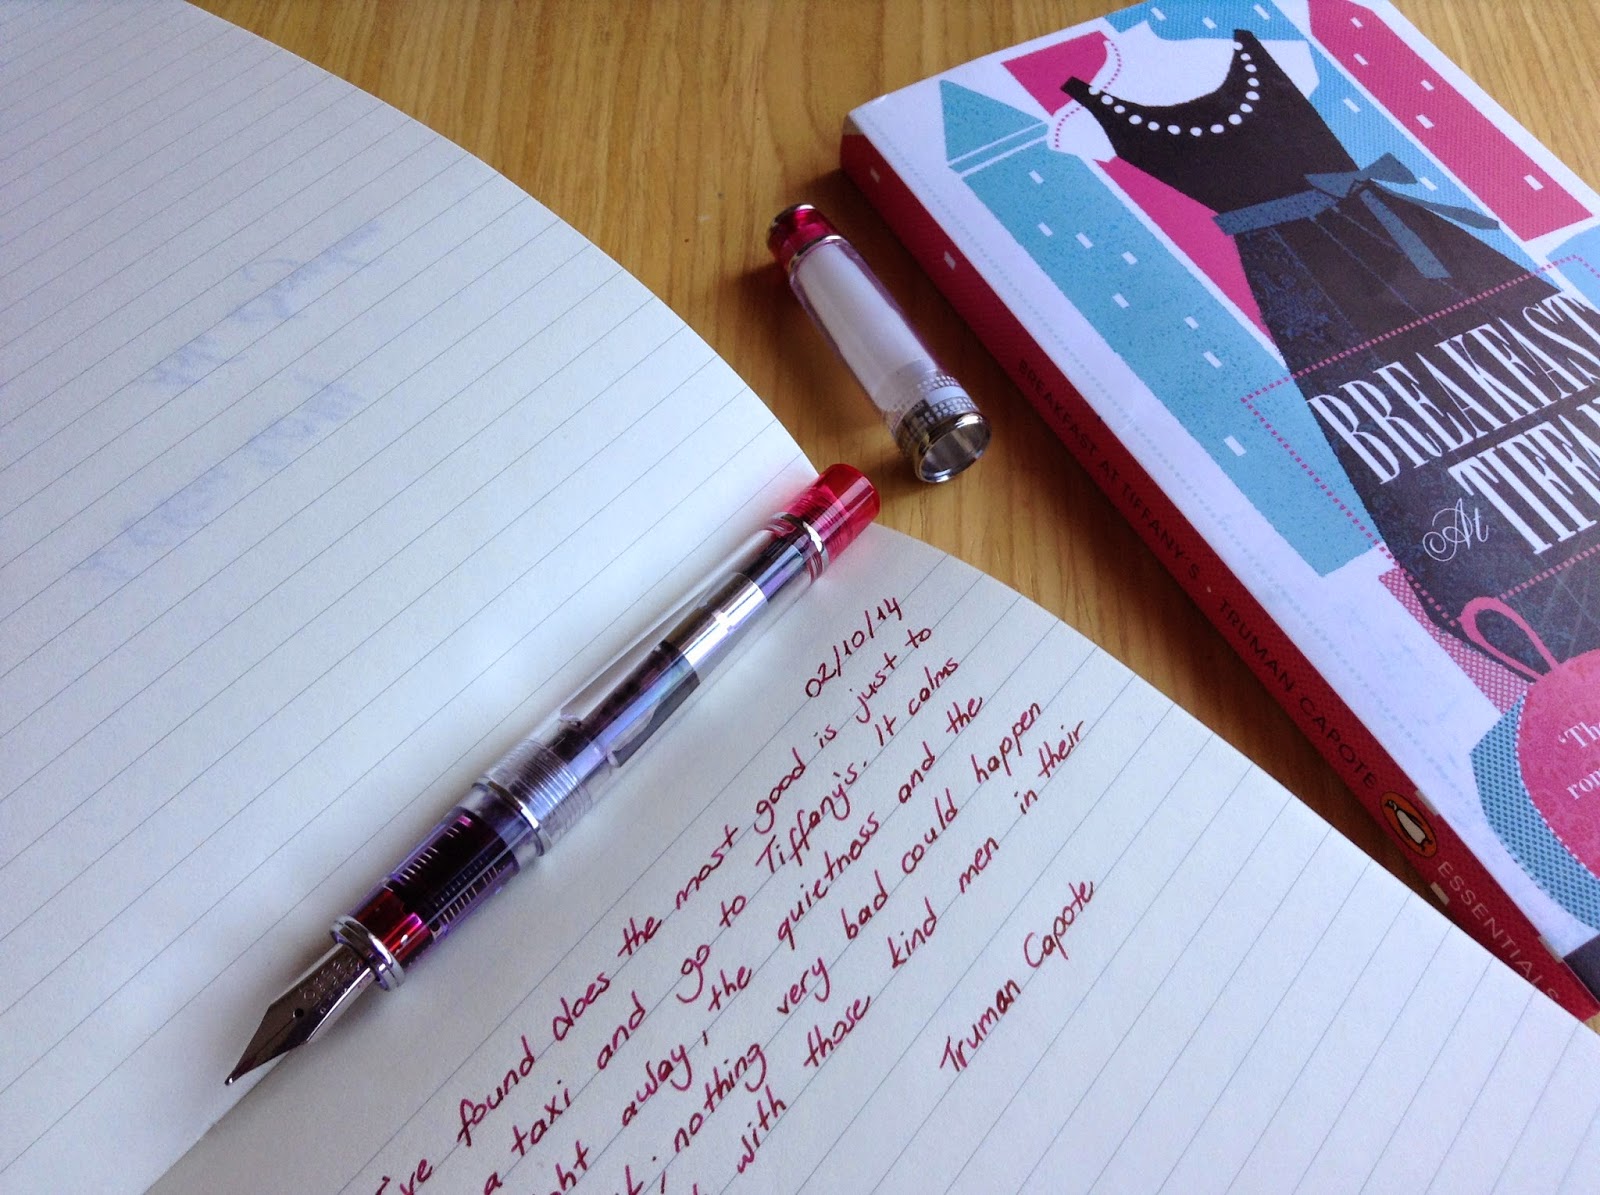 02/10/14
've found does the most good is just to
a taxi and go to Tiffany's. It calms
ght away, the quietness and the
; nothing very bad could happen
with those kind men in their
Truman Capote
BREAKFAST
At TIFFA
'Th
ro
BREAKFAST AT TIFFANY'S · TRUMAN CAPOTE
ESSENTIALS